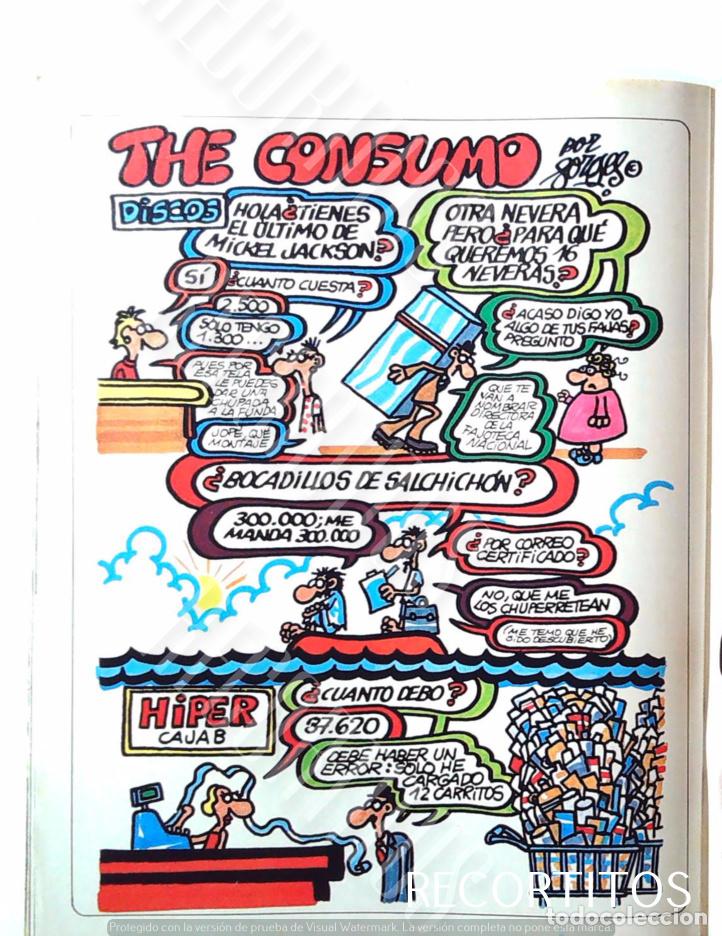 THE CONSUMO
POR
DISCOS
HOLA ¿TIENES
EL ÚLTIMO DE
MICKEL JACKSON?
SÍ
¿CUANTO CUESTA?
2.500
SÓLO TENGO
1.300...
PUES POR
ESA TELA
LE PUEDES
DAR UNA
CHUPADA
A LA FUNDA
JOPÉ, QUÉ
MONTAJE
OTRA NEVERA
PERO ¿PARA QUÉ
QUEREMOS 16
NEVERAS?
¿ACASO DIGO YO
ALGO DE TUS FAJAS?
PREGUNTO
QUE TE
VAN A
NOMBRAR
DIRECTORA
DE LA
FAJOTECA
NACIONAL
¿BOCADILLOS DE SALCHICHÓN?
300.000; ME
MANDA 300.000
¿POR CORREO
CERTIFICADO?
NO, QUE ME
LOS CHUPERRETEAN
(ME TEMO QUE HE
SIDO DESCUBIERTO)
HIPER
CAJA B
¿CUANTO DEBO?
87.620
DEBE HABER UN
ERROR: SÓLO HE
CARGADO
12 CARRITOS
RECORTITOS
todocoleccion
Protegido con la versión de prueba de Visual Watermark. La versión completa no pone esta marca.